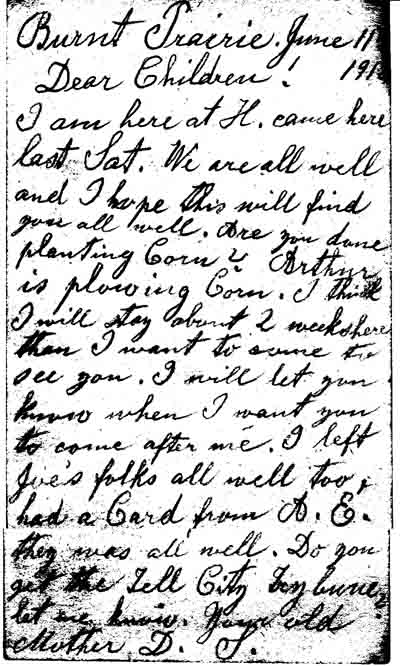 Burnt Prairie. June 11
Dear Children! 191
I am here at H. came here
last Sat. We are all well
and I hope this will find
you all well. Are you done
planting Corn? Arthur
is plowing Corn. I think
I will stay about 2 weeks here
than I want to come to
see you. I will let you
know when I want you
to come after me. I left
Joe's folks all well too,
had a Card from A. E.
they was all well. Do you
get the Tell City Trybune?
let me know. Your old
Mother D. S.